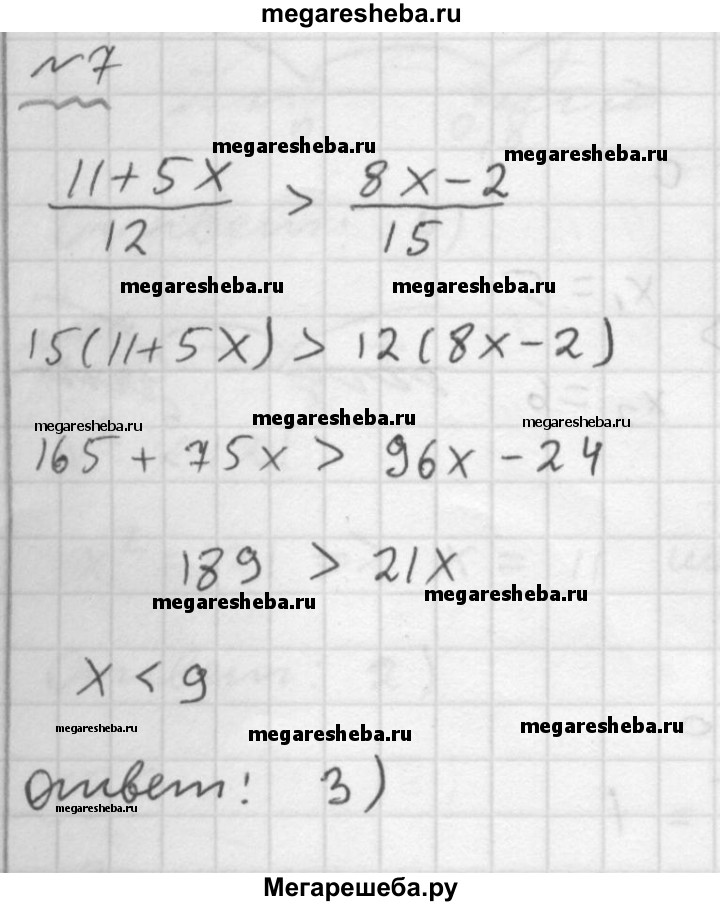 megaresheba.ru
№7
megaresheba.ru megaresheba.ru
(11+5x)/12 > (8x-2)/15
megaresheba.ru megaresheba.ru
15(11+5x) > 12(8x-2)
megaresheba.ru megaresheba.ru megaresheba.ru
165 + 75x > 96x - 24
189 > 21x
megaresheba.ru megaresheba.ru
x < 9
megaresheba.ru megaresheba.ru megaresheba.ru
ответ: 3)
megaresheba.ru
Мегарешеба.ру